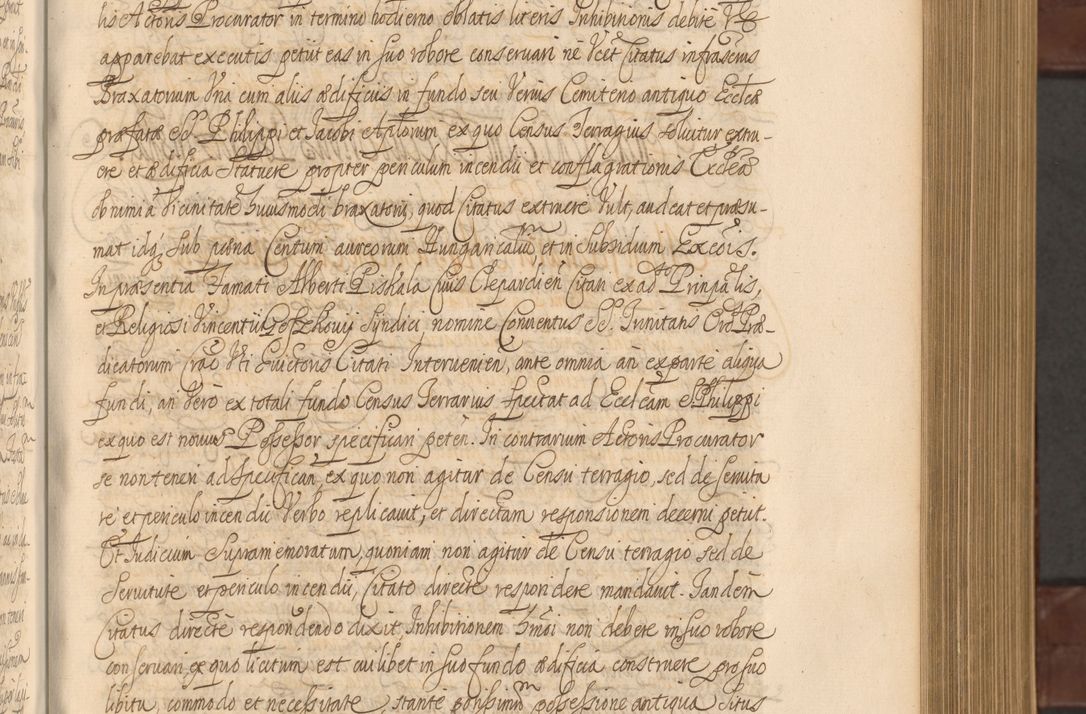 lis Actoris Procurator in termino hodierno oblatis literis Inhibitionis debite Vt
apparebat executis petiit eas in suo robore conservari ne Vcet Citatus infrascius
Braxatorium Vna cum aliis ædificiis in fundo seu Verius Cemiterio antiquo Eccleæ
præfatæ SS. Philippi et Jacobi Aptorum ex quo Census Terragius sollvitur extru-
ere et ædificia statuere propter periculum incendii et conflagrationis Eccleæ
ob nimia Vicinitate huiusmodi braxatorii, quod Citatus extruere Vult, audeat et præsu-
mat idq; sub pœna Centum aureorum Hungaricaliũ et in subsidium Excois.
In præsentia Famati Alberti Piskala Civis Clepardien̄ Citati ex ad Prinpalis,
et Religiosi Vincentii Syndici, nomine Conventus SS. Trinitatis Ord. Præ-
dicatorum Crac Vti Evictoris Citati Intervenien̄, ante omnia an ex parte aliqua
fundi, an Vero ex totali fundo Census Terrarius specitat ad Ecclēam S. Philippi
ex quo est novus Possessor specificari peten̄. In contrarium Actoris Procurator
se non teneri ad specifican̄, ex quo non agitur de Censu terragio, sed de servitu
te et periculo incendii Verbo replicavit, et directam responsionem decerni petiit.
Et Iudicium supramemoratum, quoniam non agitur de Censu terragio sed de
servitute et periculo incendii, Citato directe respondere mandavit. Tandem
Citatus directè respondendo dixit, Inhibitionem hmōi non debere in suo robore
conservari, ex quo licitum est cuilibet in suo fundo ædificia construere pro suo
libitu, commodo et necessitate, stante possessione antiqua situs